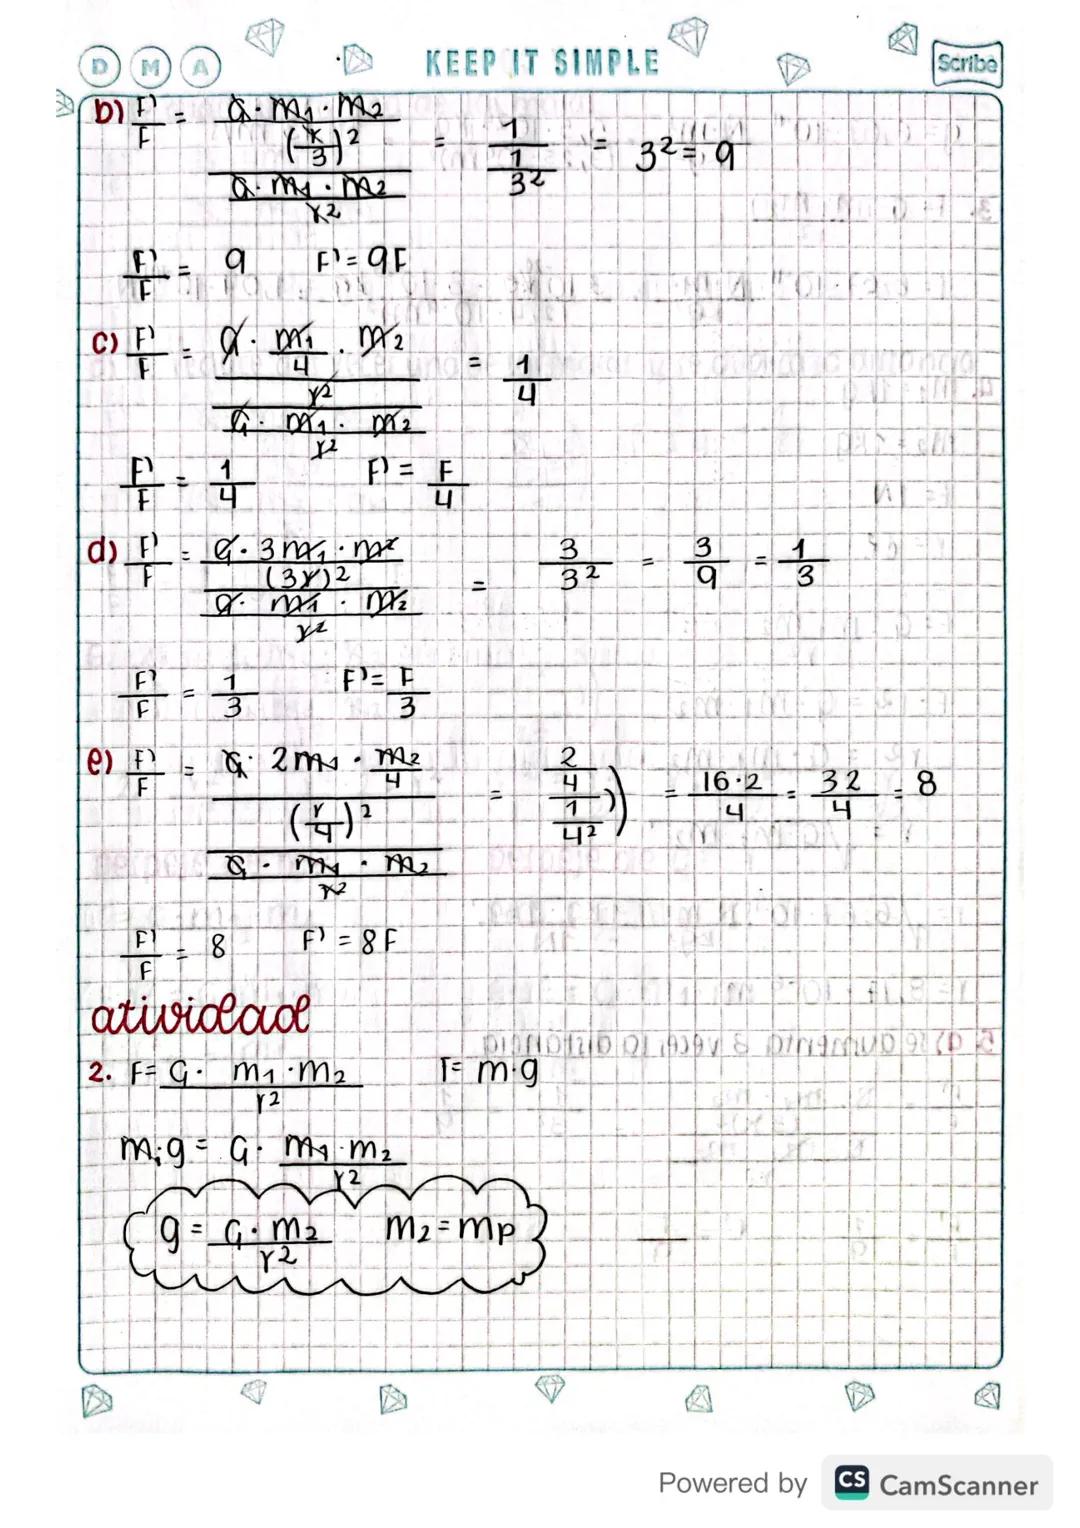 D M A KEEP IT SIMPLE Scribe
b) F'/F = (G·m1·m2/(r/3)^2)/(G·m1·m2/r^2) = 1/(1/3^2) = 3^2 = 9
F'/F = 9 F' = 9F
c) F'/F = (G·m1/4·m2/r^2)/(G·m1·m2/r^2) = 1/4
F'/F = 1/4 F' = F/4
d) F'/F = (G·3m1·m2/(3r)^2)/(G·m1·m2/r^2) = 3/3^2 = 3/9 = 1/3
F'/F = 1/3 F' = F/3
e) F'/F = (G·2m1·m2/4/(r/4)^2)/(G·m1·m2/r^2) = (2/4)/(1/4^2) = 16·2/4 = 32/4 = 8
F'/F = 8 F' = 8F
atividad
2. F = G·m1·m2/r^2 F = m·g
m1g = G·m1·m2/r^2
g = G·m2/r^2 m2 = mp
Powered by CS CamScanner